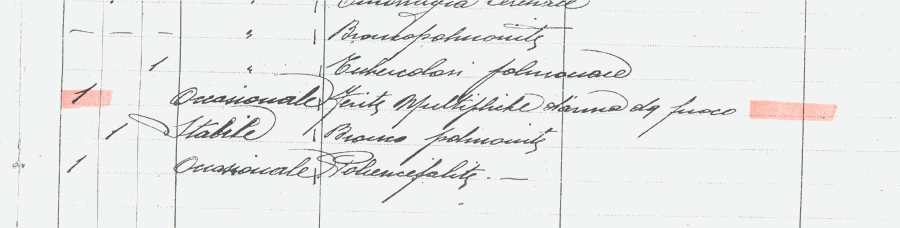 Emorragia cerebrale
— — — " Broncopolmonite
1 " Tubercolosi polmonare
1 Occasionale Ferite Multipliche d'arma da fuoco
1 Stabile Bronco polmonite
1 Occasionale Poliencefalite. —